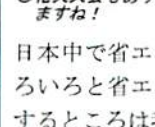 ますね！
日本中で省エ
ろいろと省エ
するところは